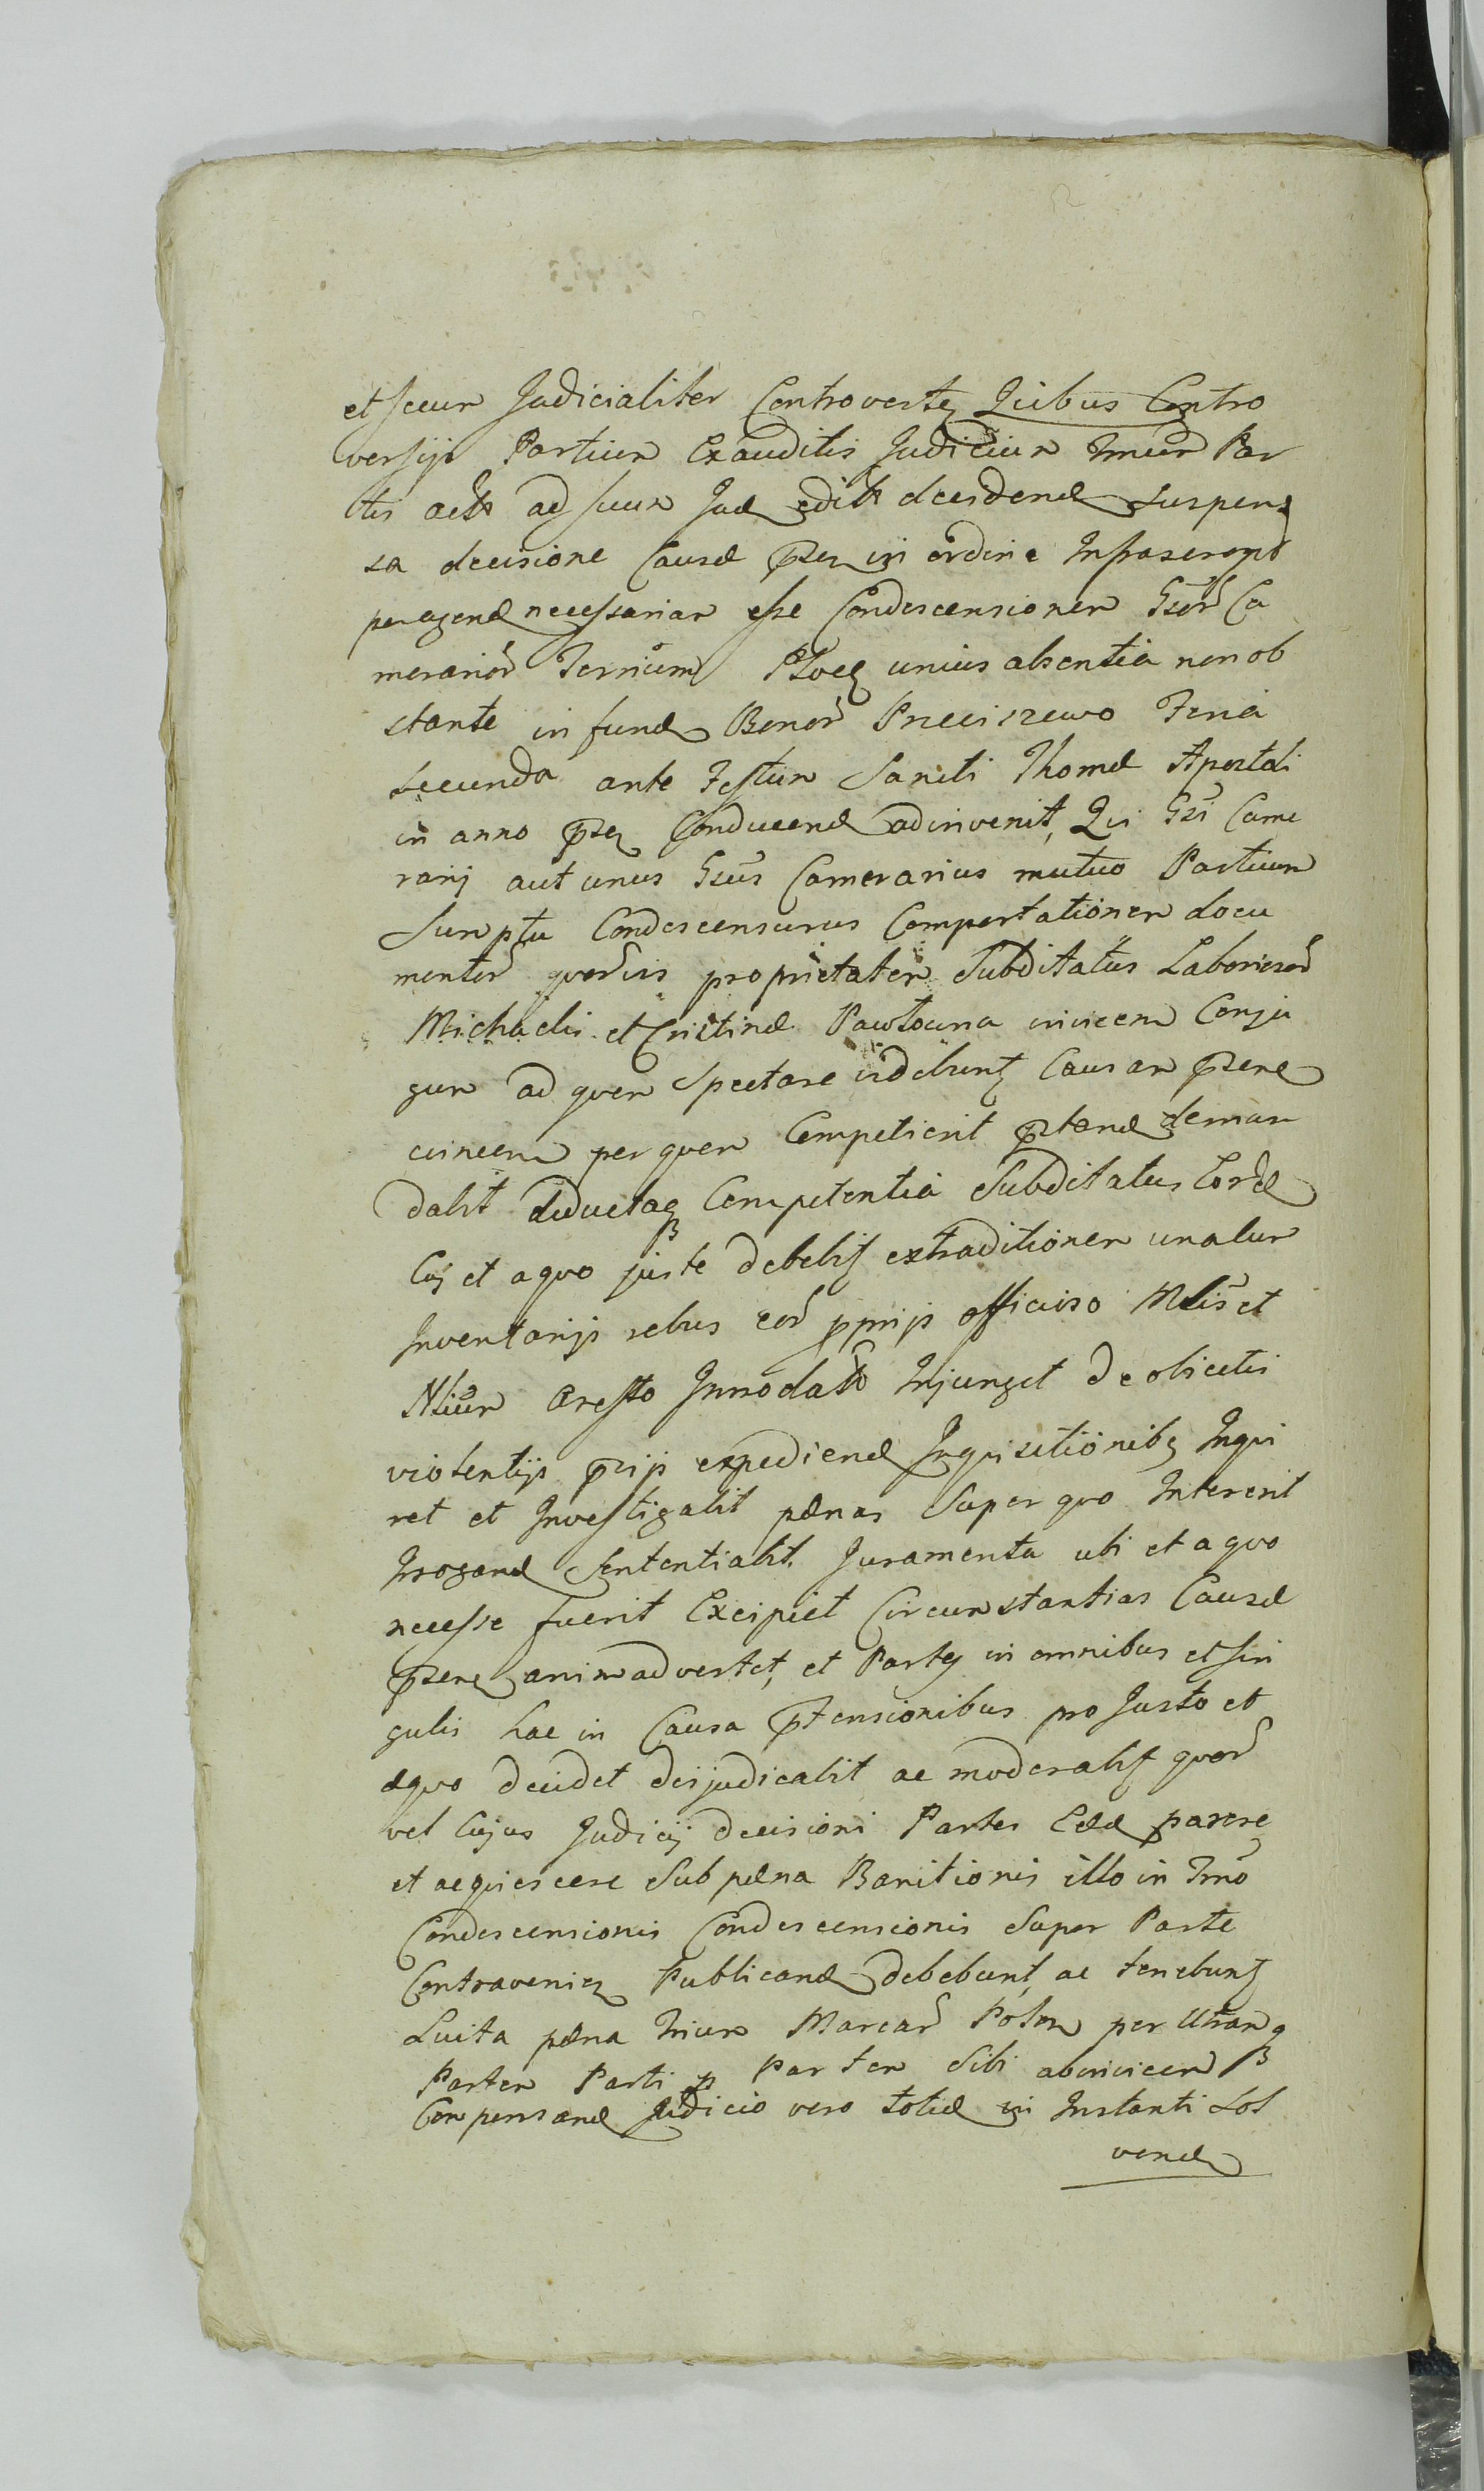 et secum Judicialiter Controverten Quibus Contro
versijs Partium Exauditis Judicium Tmum Par
tis acts ad suum Jud edits decidend Suspen
sa decisione Causæ psen in ordine Infrascript
peragend necessariam esse Condescensionem Gsor Ca
merarior Terrium unius absentia non ob
stante in fund Bonor Przeciszewo Feria
Secunda ante Festum Sancti Thomæ Apostoli
in anno psen Conducend adinvenit, Qui Gsi Came
rarij aut unus Gsus Camerarius mutuo Partium
Sumptu Condescensurus Comportationem docu
mentor quorvis proprietatem Subditatus Laboriosor
Michaelis et Cristinæ Pawłowna invicem Conju
gum ad quem Spectare videbunt Causam psen
euincen per quem Competierit ptend deman
dabit deductaq Competentia Subditatus
Cuj et a quo juste debebit extraditionem una cum
Inventarijs rebus eor pprijs officioso Mltis et
Nlium Aresto Innodats Injunget De objectis
violentijs psijs expediend Inquisitionibq Inqui
ret et Investigabit pænas Super quo Intererit
Irrogand Sententiabit. Juramenta ubi et a quo
necesse fuerit Excipiet Circumstantias Causæ
psen animadvertet, et Partes in omnibus et sin
gulis hac in Causa ptensionibus pro Justo et
æquo decidet dijudicabit ac moderabit quor
vel Cujus Judicij decisioni Partes Eæd parere
et acquiescere Sub pæna Banitionis illo in Tmo
Condescensionis Condescensionis Super Parte
Contravenien Publicand debebunt, ac tenebunt
Luita pæna trium Marcar Polon per Utramq
Partem Parti Partem Sibi abinvicem
Compensand Judicio vero totid in Instanti Sol
vend